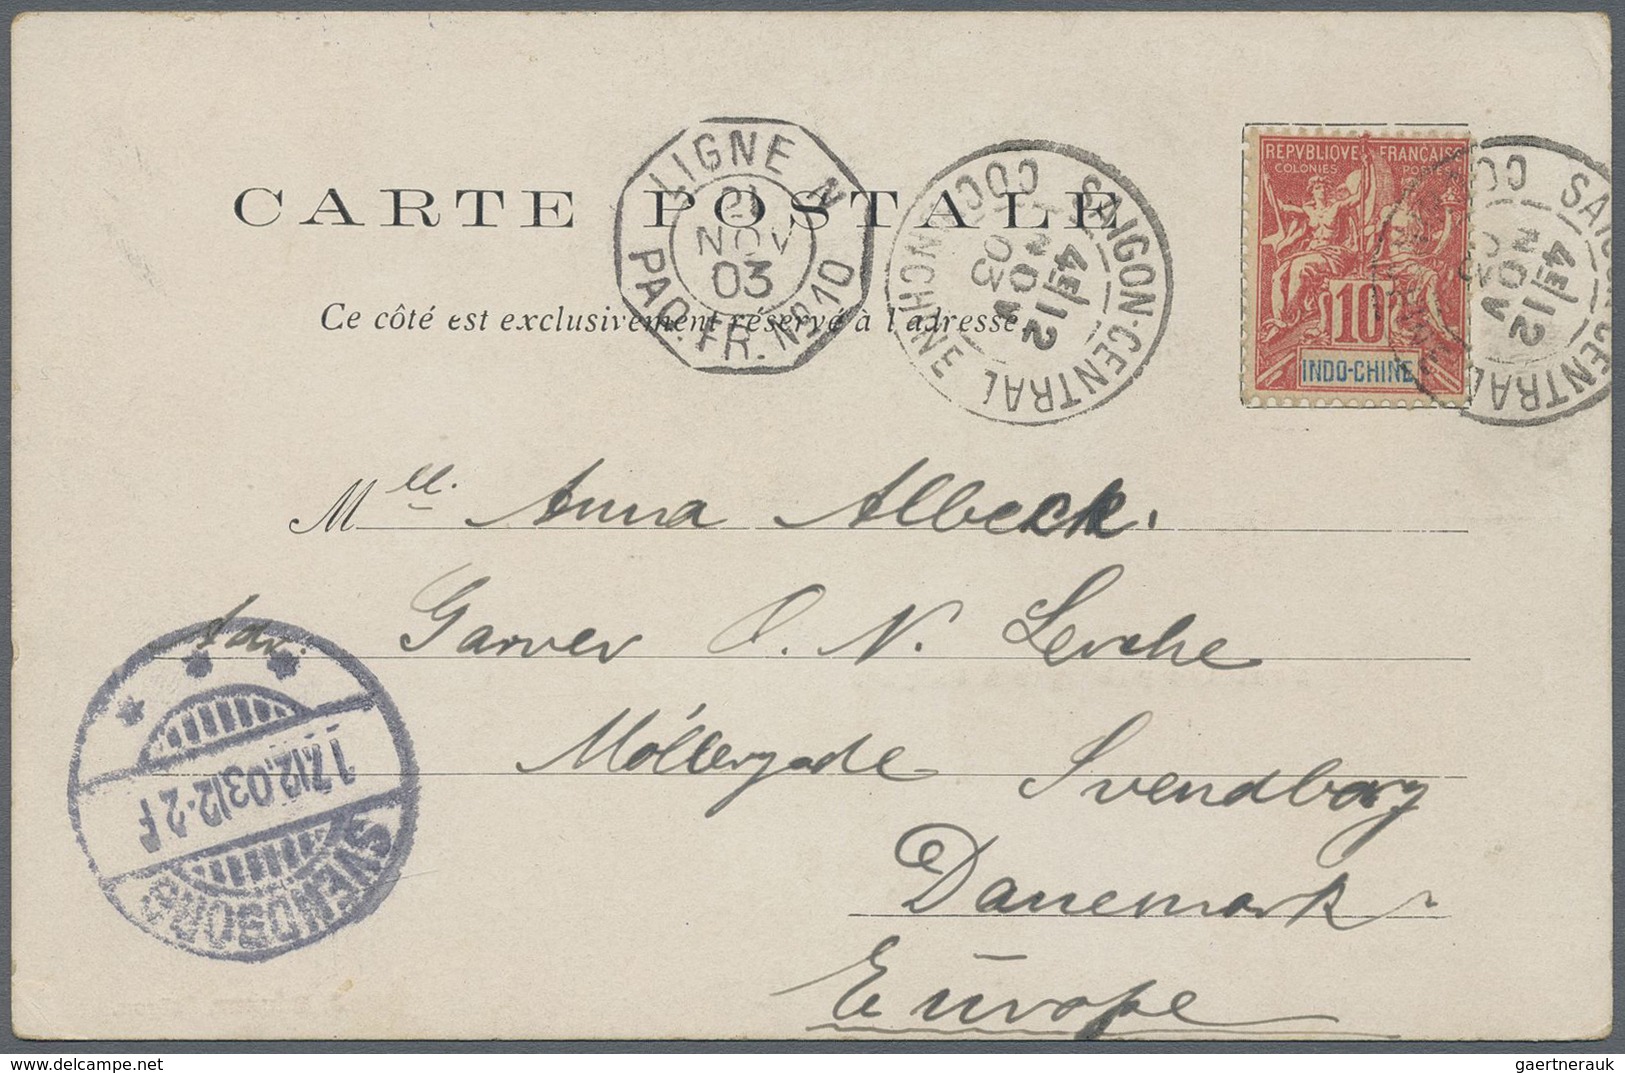 LIGNE N
21
NOV
03
PAQ. FR. Nº 10
SAIGON-CENTRAL
4E/12
NOV
03
COCHINCHINE
REPVBLIQVE FRANCAISE
COLONIES POSTES
10
INDO-CHINE
SAIGON-CENTRAL
4E/12
NOV
CARTE POSTALE
Ce côté est exclusivement réservé à l'adresse.
Mell. Anna Albeck.
Adr. Garver O. N. Lerche
Möllergade Svendborg
Danemark
Europe
17.12.03 12-2 F
SVENDBORG
© www.delcampe.net
gaertnerauk